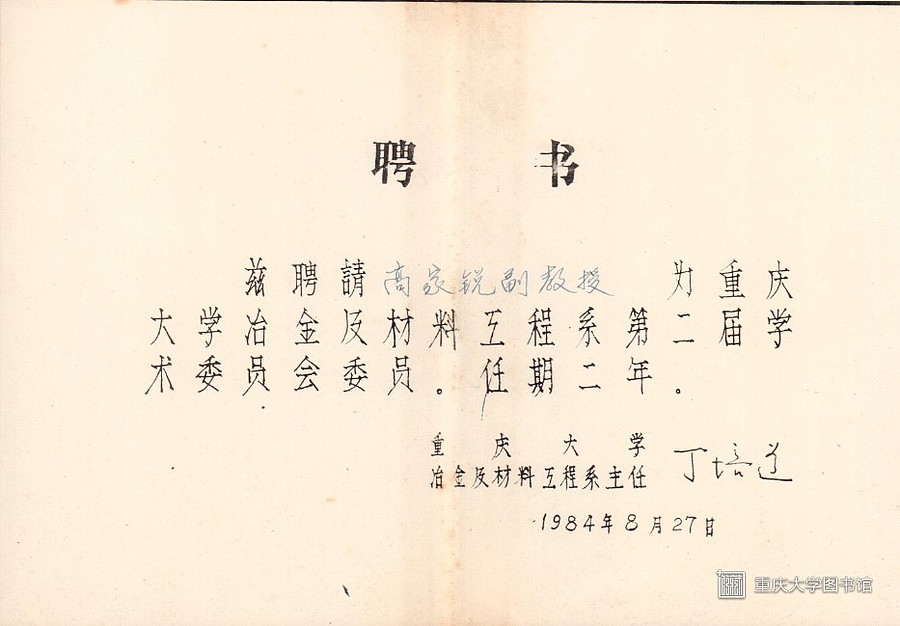 聘 书
兹聘請高家锐副教授 为重庆
大学冶金及材料工程系第二届学
术委员会委员。任期二年。
重庆大学
冶金及材料工程系主任 丁培道
1984年8月27日
重庆大学图书馆